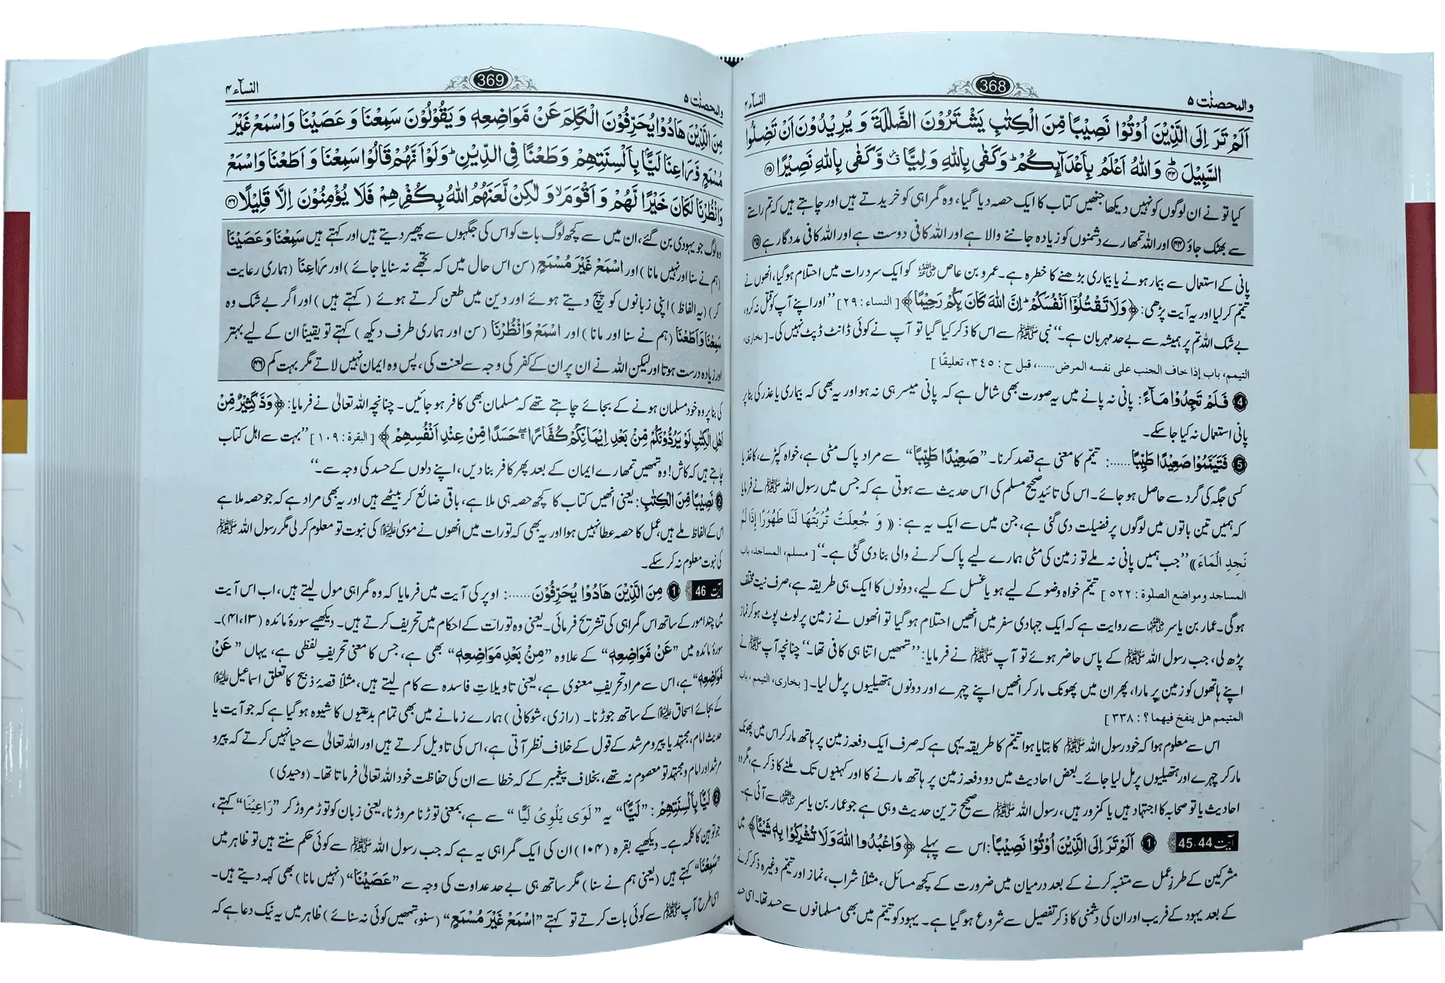 والمحصنٰت ۵
368
النسآء ۴
اَلَمْ تَرَ اِلَى الَّذِيْنَ اُوْتُوْا نَصِيْبًا مِّنَ الْكِتٰبِ يَشْتَرُوْنَ الضَّلٰلَةَ وَ يُرِيْدُوْنَ اَنْ تَضِلُّوا
السَّبِيْلَ ﴿۴۴﴾ وَاللّٰهُ اَعْلَمُ بِاَعْدَآىِٕكُمْ وَكَفٰى بِاللّٰهِ وَلِيًّا وَّكَفٰى بِاللّٰهِ نَصِيْرًا ﴿۴۵﴾
کیا تو نے ان لوگوں کو نہیں دیکھا جنھیں کتاب کا ایک حصہ دیا گیا، وہ گمراہی کو خریدتے ہیں اور چاہتے ہیں کہ تم راستے
سے بھٹک جاؤ ﴿۴۴﴾ اور اللہ تمھارے دشمنوں کو زیادہ جاننے والا ہے اور اللہ کافی دوست ہے اور اللہ کافی مددگار ہے ﴿۴۵﴾
پانی کے استعمال سے بیمار ہونے یا بیماری بڑھنے کا خطرہ ہے۔ عمرو بن عاص ؓ کو ایک سرد رات میں احتلام ہو گیا، انھوں نے
تیمم کر لیا اور یہ آیت پڑھی: ﴿وَلَا تَقْتُلُوْۤا اَنْفُسَكُمْ اِنَّ اللّٰهَ كَانَ بِكُمْ رَحِيْمًا﴾ [ النساء : ۲۹ ] ’’اور اپنے آپ کو قتل نہ کرو،
بے شک اللہ تم پر ہمیشہ سے بے حد مہربان ہے۔‘‘ نبی ﷺ سے اس کا ذکر کیا گیا تو آپ نے کوئی ڈانٹ ڈپٹ نہیں کی۔ [ بخاری،
التيمم، باب إذا خاف الجنب على نفسه المرض......، قبل ح : ۳٤٥، تعليقًا ]
4 فَلَمْ تَجِدُوْا مَآءً: پانی نہ پانے میں یہ صورت بھی شامل ہے کہ پانی میسر ہی نہ ہو اور یہ بھی کہ بیماری یا عذر کی بنا پر
پانی استعمال نہ کیا جا سکے۔
5 فَتَيَمَّمُوْا صَعِيْدًا طَيِّبًا......: تیمم کا معنی ہے قصد کرنا۔ ”صَعِيْدًا طَيِّبًا“ سے مراد پاک مٹی ہے، خواہ کپڑے، کاغذ یا
کسی جگہ کی گرد سے حاصل ہو جائے۔ اس کی تائید صحیح مسلم کی اس حدیث سے ہوتی ہے کہ جس میں رسول اللہ ﷺ نے فرمایا
کہ ہمیں تین باتوں میں لوگوں پر فضیلت دی گئی ہے، جن میں سے ایک یہ ہے: « وَ جُعِلَتْ تُرْبَتُهَا لَنَا طَهُوْرًا إِذَا لَمْ
نَجِدِ الْمَاءَ » ’’جب ہمیں پانی نہ ملے تو زمین کی مٹی ہمارے لیے پاک کرنے والی بنا دی گئی ہے۔‘‘ [ مسلم، المساجد، باب
المساجد ومواضع الصلوة : ٥٢٢ ] تیمم خواہ وضو کے لیے ہو یا غسل کے لیے، دونوں کا ایک ہی طریقہ ہے، صرف نیت مختلف
ہو گی۔ عمار بن یاسر ؓ سے روایت ہے کہ ایک جہادی سفر میں انھیں احتلام ہو گیا تو انھوں نے زمین پر لوٹ پوٹ ہو کر نماز
پڑھ لی، جب رسول اللہ ﷺ کے پاس حاضر ہوئے تو آپ ﷺ نے فرمایا: ’’تمھیں اتنا ہی کافی تھا۔‘‘ چنانچہ آپ ﷺ نے
اپنے ہاتھوں کو زمین پر مارا، پھر ان میں پھونک مار کر انھیں اپنے چہرے اور دونوں ہتھیلیوں پر مل لیا۔ [ بخاری، التيمم، باب
المتيمم هل ينفخ فيهما؟ : ۳۳۸ ]
اس سے معلوم ہوا کہ خود رسول اللہ ﷺ کا بتایا ہوا تیمم کا طریقہ یہی ہے کہ صرف ایک دفعہ زمین پر ہاتھ مار کر اس میں پھونک
مار کر چہرے اور ہتھیلیوں پر مل لیا جائے۔ بعض احادیث میں دو دفعہ زمین پر ہاتھ مارنے کا اور کہنیوں تک ملنے کا ذکر ہے، مگر وہ
احادیث یا تو صحابہ کا اجتہاد ہیں یا کمزور ہیں، رسول اللہ ﷺ سے صحیح ترین حدیث وہی ہے جو عمار بن یاسر ؓ سے آئی ہے۔
آیت 45-44 1 اَلَمْ تَرَ اِلَى الَّذِيْنَ اُوْتُوْا نَصِيْبًا: اس سے پہلے ﴿وَاعْبُدُوا اللّٰهَ وَلَا تُشْرِكُوْا بِهٖ شَيْـًٔا﴾ میں
مشرکین کے طرزِ عمل سے متنبہ کرنے کے بعد درمیان میں ضرورت کے کچھ مسائل، مثلاً شراب، نماز اور تیمم وغیرہ ذکر کرنے
کے بعد یہود کے فریب اور ان کی دشمنی کا ذکر تفصیل سے شروع ہو گیا ہے۔ یہود کو تیمم میں بھی مسلمانوں سے حسد تھا۔ اسی حسد
والمحصنٰت ۵
369
النسآء ۴
مِنَ الَّذِيْنَ هَادُوْا يُحَرِّفُوْنَ الْكَلِمَ عَنْ مَّوَاضِعِهٖ وَ يَقُوْلُوْنَ سَمِعْنَا وَ عَصَيْنَا وَ اسْمَعْ غَيْرَ
مُسْمَعٍ وَّ رَاعِنَا لَيًّۢا بِاَلْسِنَتِهِمْ وَ طَعْنًا فِى الدِّيْنِ وَ لَوْ اَنَّهُمْ قَالُوْا سَمِعْنَا وَ اَطَعْنَا وَ اسْمَعْ
وَ انْظُرْنَا لَكَانَ خَيْرًا لَّهُمْ وَ اَقْوَمَ وَ لٰكِنْ لَّعَنَهُمُ اللّٰهُ بِكُفْرِهِمْ فَلَا يُؤْمِنُوْنَ اِلَّا قَلِيْلًا ﴿۴۶﴾
وہ لوگ جو یہودی بن گئے، ان میں سے کچھ لوگ بات کو اس کی جگہوں سے پھیر دیتے ہیں اور کہتے ہیں سَمِعْنَا وَ عَصَيْنَا
(ہم نے سنا اور نہیں مانا) اور اسْمَعْ غَيْرَ مُسْمَعٍ (سن اس حال میں کہ تجھے نہ سنایا جائے) اور رَاعِنَا (ہماری رعایت
کر) (یہ الفاظ) اپنی زبانوں کو پیچ دیتے ہوئے اور دین میں طعن کرتے ہوئے (کہتے ہیں) اور اگر بے شک وہ
سَمِعْنَا وَ اَطَعْنَا (ہم نے سنا اور مانا) اور اسْمَعْ وَانْظُرْنَا (سن اور ہماری طرف دیکھ) کہتے تو یقیناً ان کے لیے بہتر
اور زیادہ درست ہوتا اور لیکن اللہ نے ان پر ان کے کفر کی وجہ سے لعنت کی، پس وہ ایمان نہیں لاتے مگر بہت کم ﴿۴۶﴾
کی بنا پر وہ خود مسلمان ہونے کے بجائے چاہتے تھے کہ مسلمان بھی کافر ہو جائیں۔ چنانچہ اللہ تعالیٰ نے فرمایا: ﴿وَدَّ كَثِيْرٌ مِّنْ
اَهْلِ الْكِتٰبِ لَوْ يَرُدُّوْنَكُمْ مِّنْۢ بَعْدِ اِيْمَانِكُمْ كُفَّارًا حَسَدًا مِّنْ عِنْدِ اَنْفُسِهِمْ﴾ [ البقرة : ۱۰۹ ] ’’بہت سے اہل کتاب
چاہتے ہیں کہ کاش! وہ تمھیں تمھارے ایمان کے بعد پھر کافر بنا دیں، اپنے دلوں کے حسد کی وجہ سے۔‘‘
2 نَصِيْبًا مِّنَ الْكِتٰبِ: یعنی انھیں کتاب کا کچھ حصہ ہی ملا ہے، باقی ضائع کر بیٹھے ہیں اور یہ بھی مراد ہے کہ جو حصہ ملا ہے
اس کے الفاظ ملے ہیں، عمل کا حصہ عطا نہیں ہوا اور یہ بھی کہ تورات میں انھوں نے موسیٰ ؑ کی نبوت تو معلوم کر لی مگر رسول اللہ ﷺ
کی نبوت معلوم نہ کر سکے۔
آیت 46 1 مِنَ الَّذِيْنَ هَادُوْا يُحَرِّفُوْنَ......: اوپر کی آیت میں فرمایا کہ وہ گمراہی مول لیتے ہیں، اب اس آیت
میں چند امور کے ساتھ اس گمراہی کی تشریح فرمائی۔ یعنی وہ تورات کے احکام میں تحریف کرتے ہیں۔ دیکھیے سورۂ مائدہ (۱۳، ۴۱)۔
سورۂ مائدہ میں ”عَنْ مَّوَاضِعِهٖ“ کے علاوہ ”مِنْۢ بَعْدِ مَوَاضِعِهٖ“ بھی ہے، جس کا معنی تحریفِ لفظی ہے، یہاں ”عَنْ
مَّوَاضِعِهٖ“ ہے، اس سے مراد تحریفِ معنوی ہے، یعنی تاویلاتِ فاسدہ سے کام لیتے ہیں، مثلاً قصۂ ذبیح کا تعلق اسماعیل ؑ
کے بجائے اسحاق ؑ کے ساتھ جوڑنا۔ (رازی، شوکانی) ہمارے زمانے میں بھی تمام بدعتیوں کا شیوہ ہو گیا ہے کہ جو آیت یا
حدیث امام، مجتہد یا پیر و مرشد کے قول کے خلاف نظر آتی ہے، اس کی تاویل کرتے ہیں اور اللہ تعالیٰ سے حیا نہیں کرتے کہ پیر و
مرشد اور امام و مجتہد تو معصوم نہ تھے، بخلاف پیغمبر کے کہ خطا سے ان کی حفاظت خود اللہ تعالیٰ فرماتا تھا۔ (وحیدی)
2 لَيًّۢا بِاَلْسِنَتِهِمْ: ”لَيًّا“ یہ ”لَوَى يَلْوِيْ لَيًّا“ سے ہے، بمعنی توڑنا مروڑنا، یعنی زبان کو توڑ مروڑ کر ”رَاعِيْنَا“ کہتے،
جو توہین کا کلمہ ہے۔ دیکھیے بقرہ (۱۰۴) ان کی ایک گمراہی یہ ہے کہ جب رسول اللہ ﷺ سے کوئی حکم سنتے ہیں تو ظاہر میں
”سَمِعْنَا“ کہتے ہیں (یعنی ہم نے سنا) مگر ساتھ ہی بے حد عداوت کی وجہ سے ”عَصَيْنَا“ (نہیں مانا) بھی کہہ دیتے ہیں۔
اسی طرح آپ ﷺ سے کوئی بات کرتے تو کہتے ”اسْمَعْ غَيْرَ مُسْمَعٍ“ (سنو، تمھیں کوئی نہ سنائے) ظاہر میں یہ نیک دعا ہے کہ